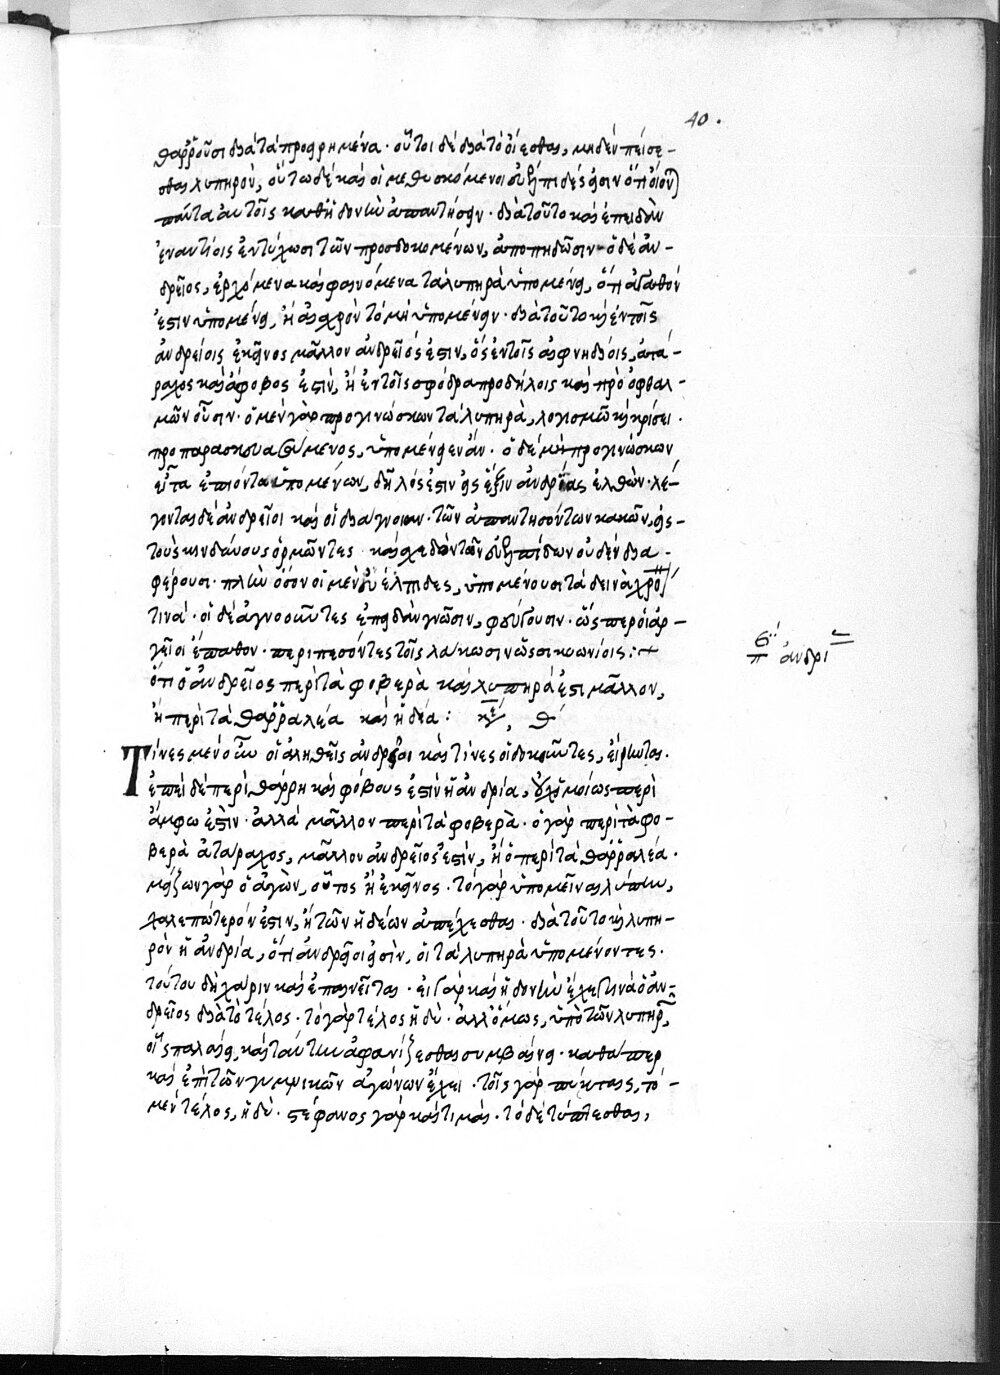 40.
θαρροῦσι διὰ τὰ προειρημένα· οὗτοι δὲ διὰ τὸ οἴεσθαι, μηδὲν πείσε-
σθαι λυπηρὸν, οὕτω δὲ καὶ οἱ μεθυσκόμενοι εὐέλπιδές εἰσιν ὅτι
πάντα αὐτοῖς καθ' ἡδονὴν ἀπαντήσειν· διὰ τοῦτο καὶ ἐπειδὰν
ἐναντίοις ἐντύχωσι τῶν προσδοκομένων, ἀποπηδῶσιν· ὁ δὲ ἀν-
δρεῖος, ἐρχόμενα καὶ φαινόμενα τὰ λυπηρὰ ὑπομένει, ὅτι ἀγαθόν
ἐστιν ὑπομένειν, ἢ αἰσχρὸν τὸ μὴ ὑπομένειν· διὰ τοῦτο καὶ ἐν τοῖς
ἀνδρείοις ἐκεῖνος μᾶλλον ἀνδρεῖός ἐστιν, ὃς ἐν τοῖς αἰφνηδίοις, ἀτά-
ραχος καὶ ἄφοβος ἐστὶν, ἢ ἐν τοῖς σφόδρα προδήλοις καὶ πρὸ ὀφθαλ-
μῶν οὖσιν· ὁ μὲν γὰρ προγινώσκων τὰ λυπηρὰ, λογισμῶ καὶ κρίσει·
προπαρασκευασάμενος, ὑπομένειεν ἄν· ὁ δὲ μὴ προγινώσκων
εἶτα ἐπιόντα ὑπομένων, δῆλός ἐστιν εἰς ἕξιν ἀνδρείας ἐλθών· λέ-
γονται δὲ ἀνδρεῖοι καὶ οἱ δι' ἄγνοιαν· τῶν ἀπαντησόντων κακῶν, εἰς
τοὺς κινδύνους ὁρμῶντες· καὶ σχεδὸν τῶν εὐελπίδων οὐδὲν δια-
φέρουσι· πλὴν ὅσον οἱ μὲν εὐέλπιδες, ὑπομένουσι τὰ δεινὰ χρόνον
τινά· οἱ δὲ ἀγνοοῦντες ἐπειδὰν γνῶσιν, φεύγουσιν· ὥσπερ οἱ ἀρ-
γεῖοι ἔπαθον· περιπεσόντες τοῖς λάκωσιν ὡς σικυωνίοις:+
ὅτι ὁ ἀνδρεῖος περὶ τὰ φοβερὰ καὶ λυπηρά ἐστι μᾶλλον,
ἢ περὶ τὰ θαρραλέα καὶ ἡδέα: κεφ, θ΄
Τίνες μὲν οὖν οἱ ἀληθεῖς ἀνδρεῖοι καὶ τίνες οἱ δοκοῦντες, εἴρηται.
ἐπεὶ δὲ περὶ θάρρη καὶ φόβους ἐστὶν ἡ ἀνδρία, οὐχ ὁμοίως περὶ
ἄμφω ἐστὶν· ἀλλὰ μᾶλλον περὶ τὰ φοβερὰ· ὁ γὰρ περὶ τὰ φο-
βερὰ ἀτάραχος, μᾶλλον ἀνδρεῖος ἐστὶν, ἢ ὁ περὶ τὰ θαρραλέα·
μείζων γὰρ ὁ ἀγὼν, οὗτος ἢ ἐκεῖνος· τὸ γὰρ ὑπομεῖναι λύπην,
χαλεπώτερόν ἐστιν, ἢ τῶν ἡδέων ἀπέχεσθαι· διὰ τοῦτο καὶ λυπη-
ρὸν ἡ ἀνδρία, ὅτι ἀνδρεῖοι εἰσὶν, οἱ τὰ λυπηρὰ ὑπομένοντες·
τούτου δὴ χάριν καὶ ἐπαινεῖται· εἰ γὰρ καὶ ἡδονὴν ἔχει τινὰ ὁ ἀν-
δρεῖος διὰ τὸ τέλος· τὸ γὰρ τέλος ἡδύ· ἀλλ' ὅμως, ὑπὸ τῶν λυπηρῶν
οἷς παλαίει, καὶ ταύτην ἀφανίζεσθαι συμβαίνει· καθάπερ
καὶ ἐπὶ τῶν γυμνικῶν ἀγώνων ἔχει· τοῖς γὰρ πύκταις, τὸ
μὲν τέλος, ἡδύ· στέφανος γὰρ καὶ τιμαί· τὸ δὲ τύπτεσθαι,
ἀνδρι